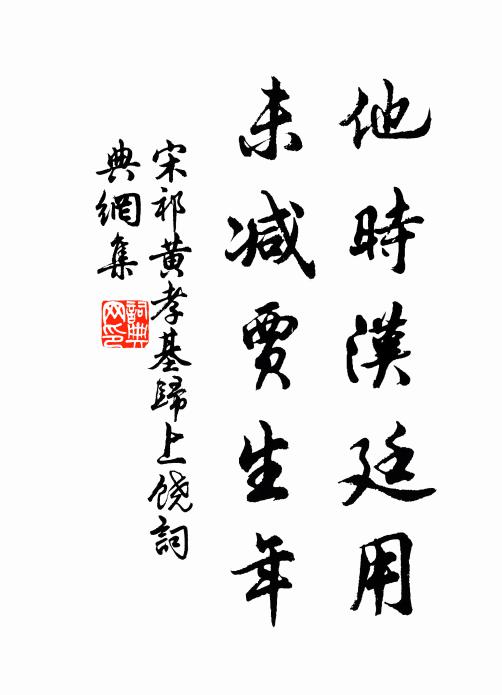 他時漢廷用
未減賈生年
宋祁黄孝基歸上饒詞
典網集
詞典
网印